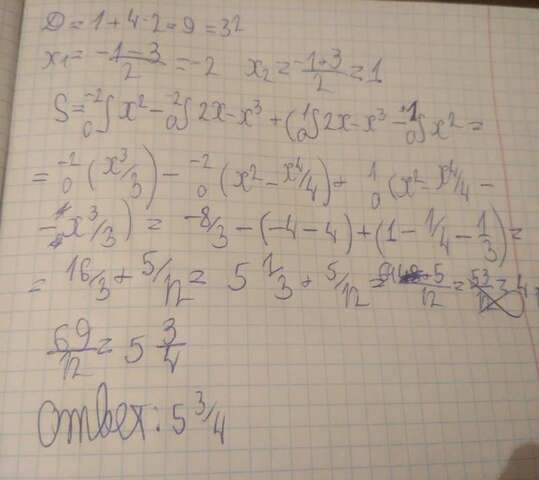 D = 1 + 4·2 = 9 = 3²
x₁ = (-1-3)/2 = -2 x₂ = (-1+3)/2 = 1
S = ₀⁻²∫ x² - ₀⁻²∫ 2x - x³ + (₀¹∫ 2x - x³ - ₀¹∫ x² =
= ₀⁻² (x³/3) - ₀⁻² (x² - x⁴/4) + ₀¹ (x² - x⁴/4 -
- x³/3) = -8/3 - (-4-4) + (1 - 1/4 - 1/3) =
= 16/3 + 5/12 = 5 1/3 + 5/12 =
69/12 = 5 3/4
ответ: 5 3/4